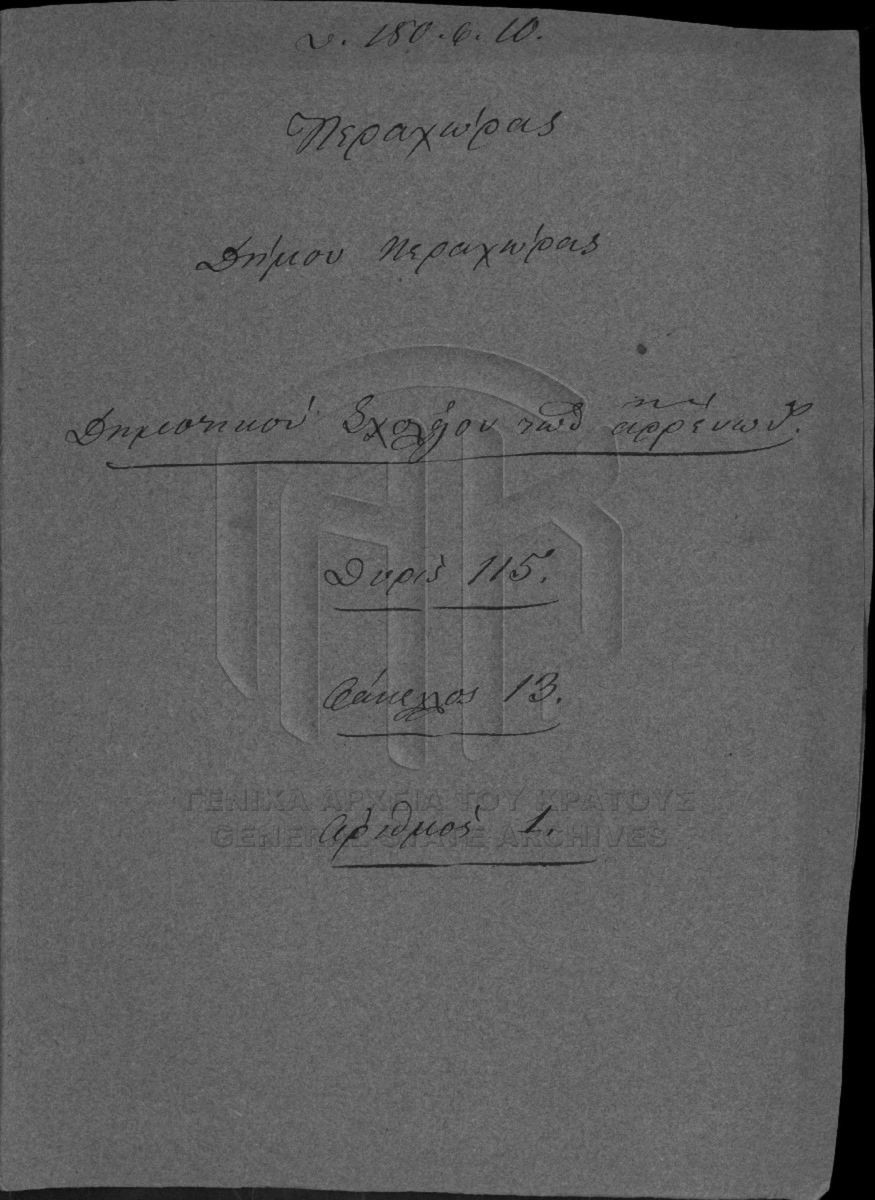 ν. 180.6.10.
Περαχώρας
Δήμου Περαχώρας
Δημοτικού Σχολείου των αρρένων.
Θυρίς 115.
Φάκελλος 13.
ΓΕΝΙΚΑ ΑΡΧΕΙΑ ΤΟΥ ΚΡΑΤΟΥΣ
Αριθμός 1.
GENERAL STATE ARCHIVES